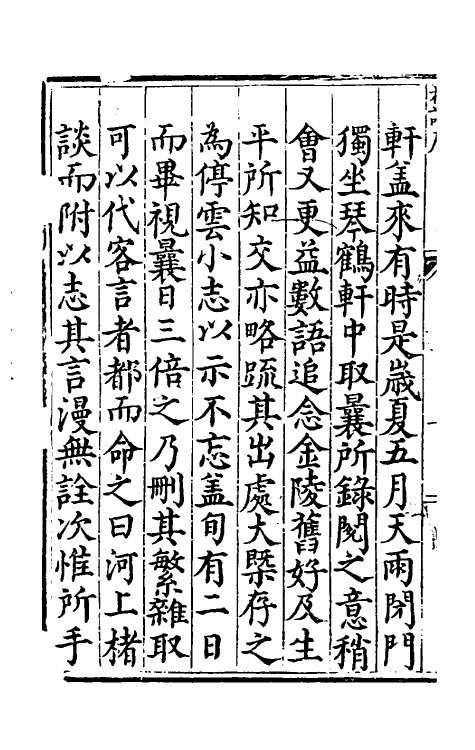 軒盖來有時是歲夏五月天雨閉門
獨坐琴鶴軒中取曩所錄閱之意稍
會又更益數語追念金陵舊好及生
平所知交亦略疏其出處大槩存之
為停雲小志以示不忘盖旬有二日
而畢視曩日三倍之乃刪其繁雜取
可以代客言者都而命之曰河上楮
談而附以志其言漫無詮次惟所手